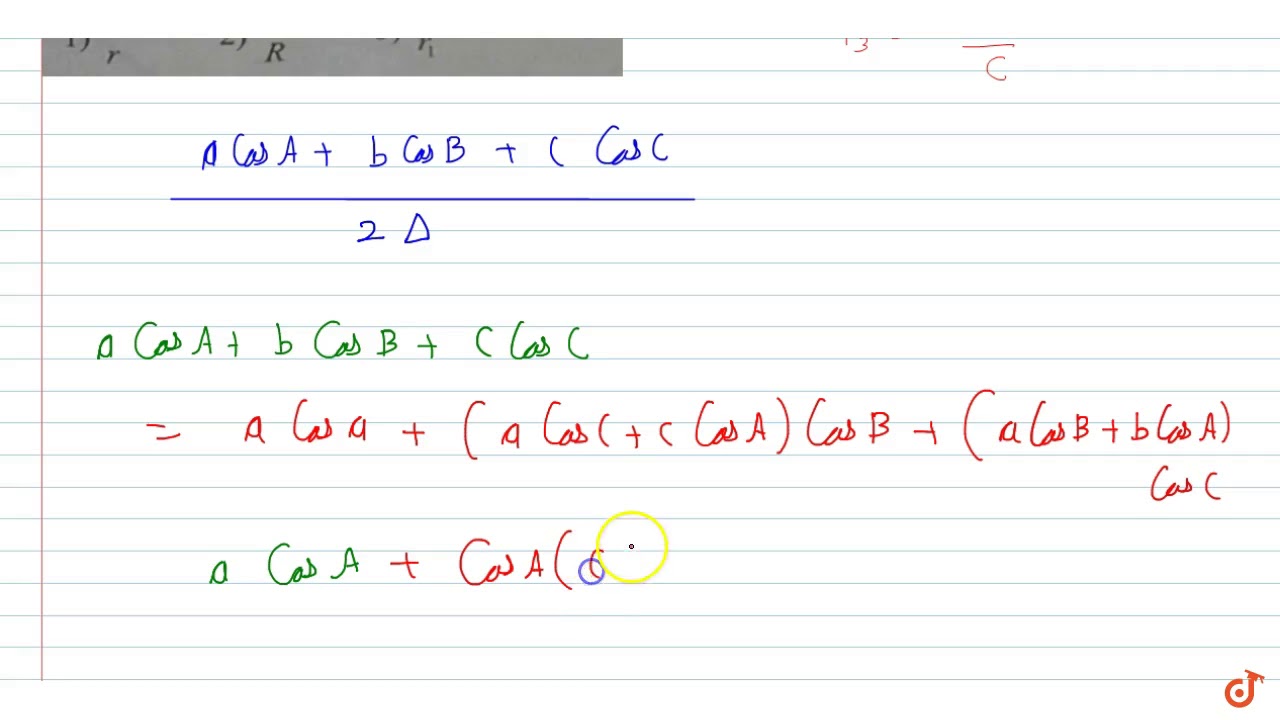 1) r 2) R r₁
C
a Cos A + b Cos B + C Cos C
2 Δ
a Cos A + b Cos B + C Cos C
= a Cos a + ( a Cos C + c Cos A ) Cos B + ( a Cos B + b Cos A )
Cos C
a Cos A + Cos A (